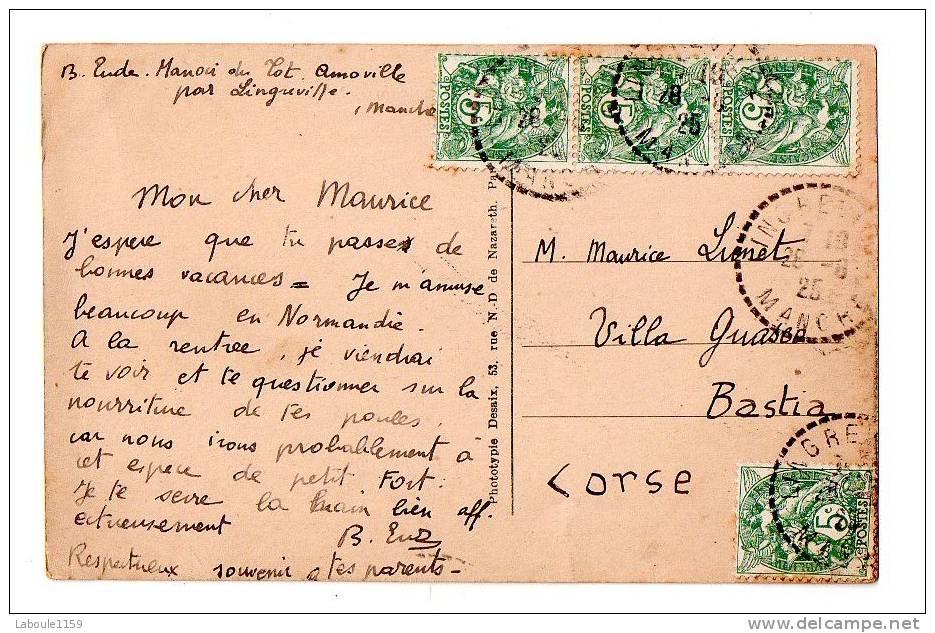 B. Enda. Manoir du Tot Amoville
par Lingreville.
(Manche
Mon cher Maurice
J'espere que tu passes de
bonnes vacances = Je m'amuse
beaucoup en Normandie.
A la rentrée, je viendrai
te voir et te questionner sur la
nourriture de tes poules,
car nous irons probablement à
cet espece de petit Fort.
Je te serre la main bien aff.
ectueusement
B. End
Respectueux souvenir a tes parents -
Phototypie Desaix, 53, rue N.-D de Nazareth. Pa
M. Maurice
Villa
Bastia
Corse
5 POSTES
5 POSTES
5 POSTES
28
25
MAN
INGRE
10
28 - 8
25
MANCHE
LINGRE
5c POSTES
Laboule1159
http://www.delcampe.net